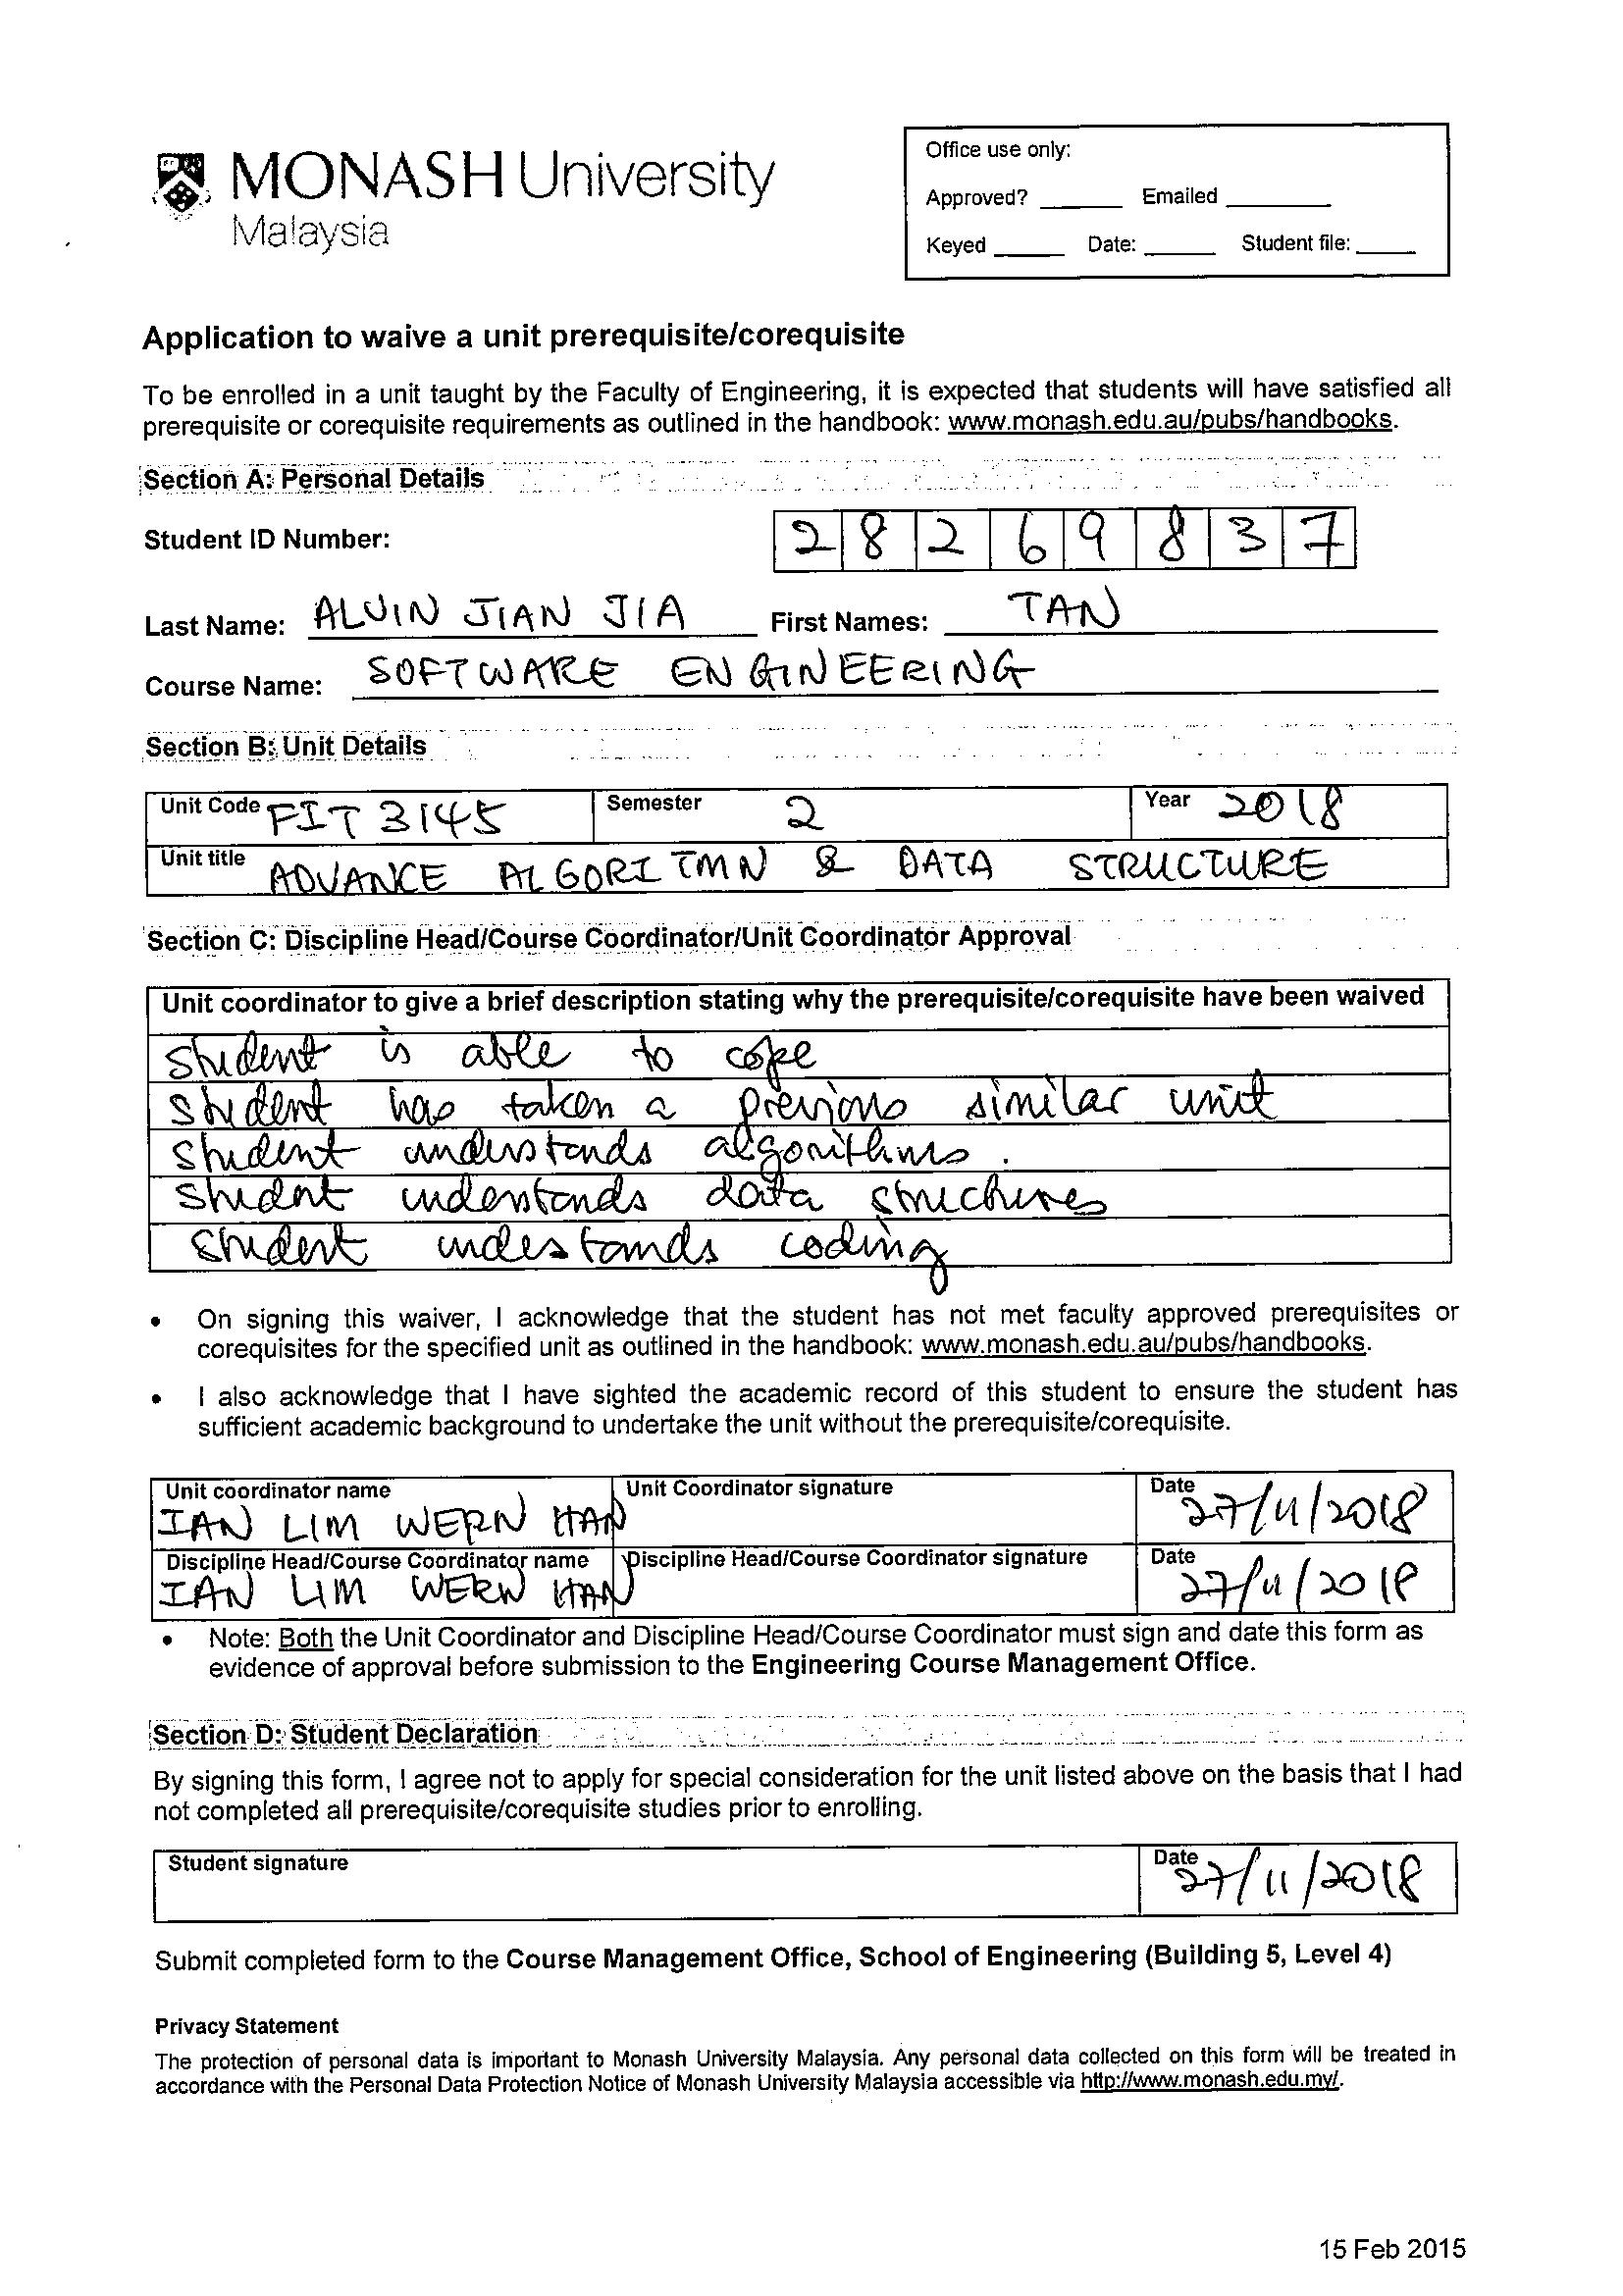 MONASH University
Malaysia
Office use only:
Approved? ______ Emailed ______
Keyed ______ Date: ______ Student file: ______
Application to waive a unit prerequisite/corequisite
To be enrolled in a unit taught by the Faculty of Engineering, it is expected that students will have satisfied all
prerequisite or corequisite requirements as outlined in the handbook: www.monash.edu.au/pubs/handbooks.
Section A: Personal Details
Student ID Number: 2 8 2 6 9 8 3 7
Last Name: ALVIN JIAN JIA First Names: TAN
Course Name: SOFTWARE ENGINEERING
Section B: Unit Details
Unit Code FIT 3145 Semester 2 Year 2018
Unit title ADVANCE ALGORITMN & DATA STRUCTURE
Section C: Discipline Head/Course Coordinator/Unit Coordinator Approval
Unit coordinator to give a brief description stating why the prerequisite/corequisite have been waived
student is able to cope
student has taken a previous similar unit
student understands algorithms.
student understands data structures
student understands coding
• On signing this waiver, I acknowledge that the student has not met faculty approved prerequisites or
corequisites for the specified unit as outlined in the handbook: www.monash.edu.au/pubs/handbooks.
• I also acknowledge that I have sighted the academic record of this student to ensure the student has
sufficient academic background to undertake the unit without the prerequisite/corequisite.
Unit coordinator name Unit Coordinator signature Date
IAN LIM WERN HAN 27/11/2018
Discipline Head/Course Coordinator name Discipline Head/Course Coordinator signature Date
IAN LIM WERN HAN 27/11/2018
• Note: Both the Unit Coordinator and Discipline Head/Course Coordinator must sign and date this form as
evidence of approval before submission to the Engineering Course Management Office.
Section D: Student Declaration
By signing this form, I agree not to apply for special consideration for the unit listed above on the basis that I had
not completed all prerequisite/corequisite studies prior to enrolling.
Student signature Date 27/11/2018
Submit completed form to the Course Management Office, School of Engineering (Building 5, Level 4)
Privacy Statement
The protection of personal data is important to Monash University Malaysia. Any personal data collected on this form will be treated in
accordance with the Personal Data Protection Notice of Monash University Malaysia accessible via http://www.monash.edu.my/.
15 Feb 2015